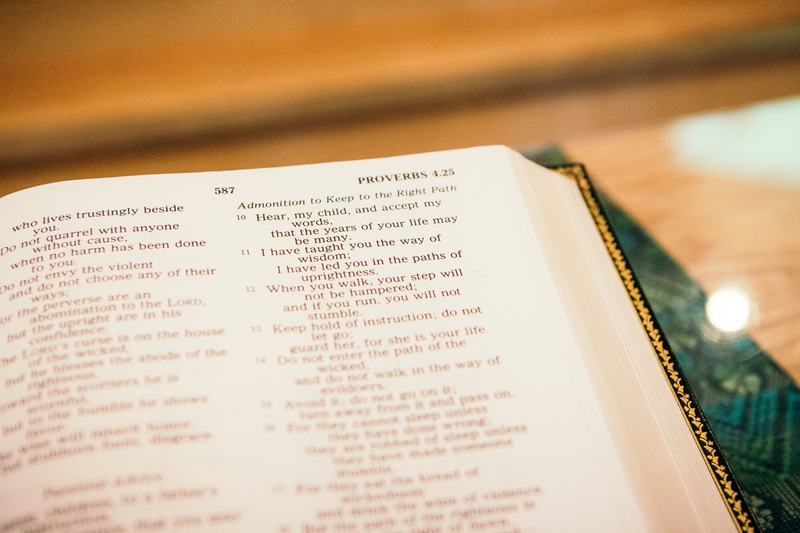 587
PROVERBS 4.25
who lives trustingly beside
you.
Do not quarrel with anyone
without cause,
when no harm has been done
to you.
Do not envy the violent
and do not choose any of their
ways;
for the perverse are an
abomination to the LORD,
but the upright are in his
confidence.
The LORD's curse is on the house
of the wicked,
but he blesses the abode of the
righteous.
Toward the scorners he is
scornful,
but to the humble he shows
favor.
The wise will inherit honor,
but stubborn fools, disgrace.
Parental Advice
children, to a father's
Admonition to Keep to the Right Path
10 Hear, my child, and accept my
words,
that the years of your life may
be many.
11 I have taught you the way of
wisdom;
I have led you in the paths of
uprightness.
12 When you walk, your step will
not be hampered;
and if you run, you will not
stumble.
13 Keep hold of instruction; do not
let go;
guard her, for she is your life.
14 Do not enter the path of the
wicked,
and do not walk in the way of
evildoers.
15 Avoid it; do not go on it;
turn away from it and pass on.
16 For they cannot sleep unless
they have done wrong;
they are robbed of sleep unless
they have made someone
stumble.
17 For they eat the bread of
wickedness
and drink the wine of violence
18 But the path of the righteous is